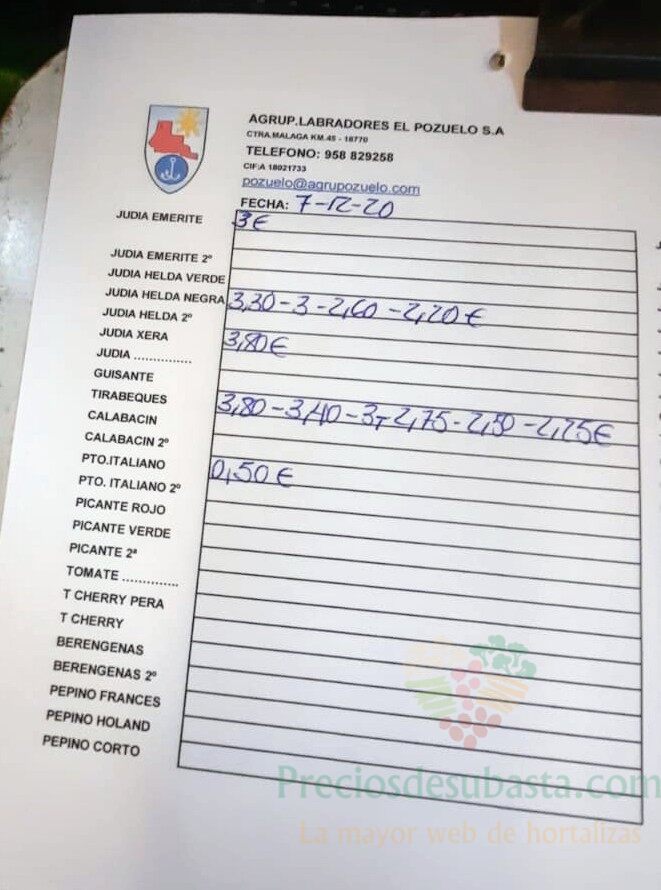 AGRUP.LABRADORES EL POZUELO S.A
CTRA.MALAGA KM.45 - 18770
TELEFONO: 958 829258
CIF:A 18021733
pozuelo@agrupozuelo.com
FECHA: 7-12-20
JUDIA EMERITE 3€
JUDIA EMERITE 2º
JUDIA HELDA VERDE
JUDIA HELDA NEGRA 3,30-3-2,60-2,20€
JUDIA HELDA 2º
JUDIA XERA 3,80€
JUDIA ...............
GUISANTE
TIRABEQUES 3,80-3,40-3-2,75-2,50-2,25€
CALABACIN
CALABACIN 2º
PTO.ITALIANO 0,50€
PTO. ITALIANO 2º
PICANTE ROJO
PICANTE VERDE
PICANTE 2ª
TOMATE ...............
T CHERRY PERA
T CHERRY
BERENGENAS
BERENGENAS 2º
PEPINO FRANCES
PEPINO HOLAND
PEPINO CORTO
Preciosdesubasta.com
La mayor web de hortalizas